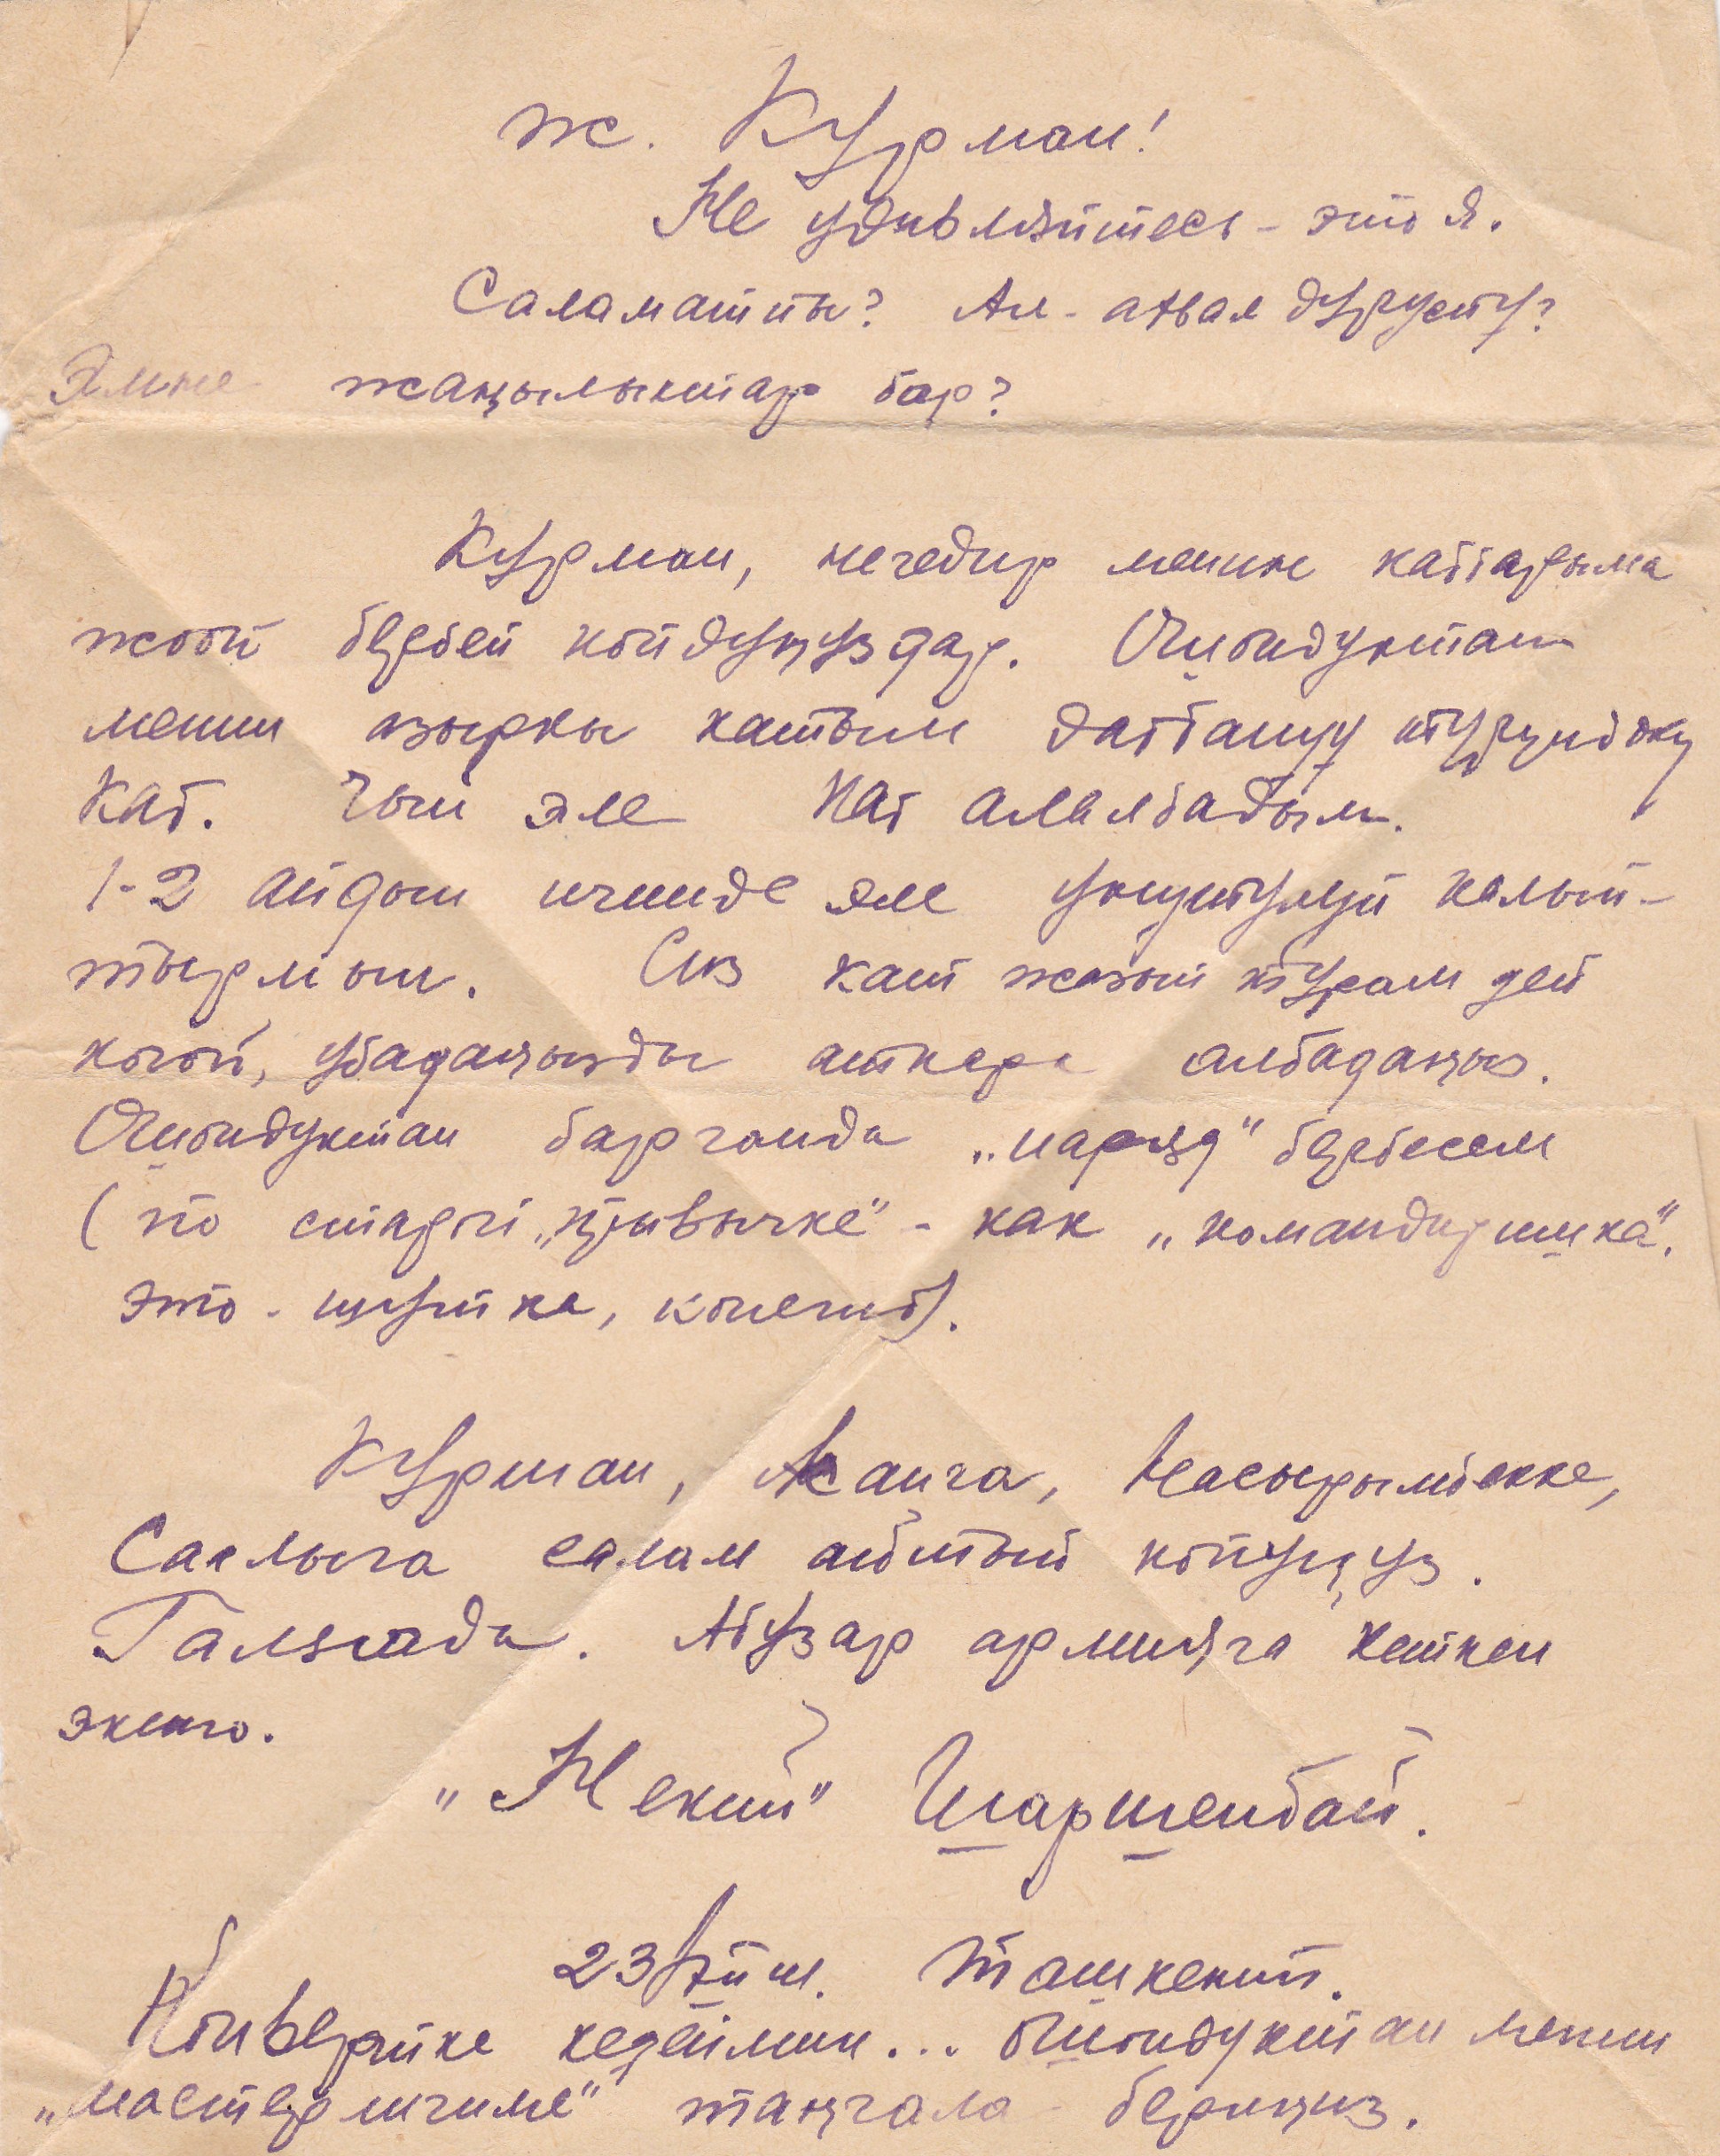 Ж. Курман!
Не удивляйтесь - это я.
Саламатпы? Ал-ахвал дурусту?
Эмне жаңылыктар бар?
Курман, нечедир менин каттарыма
жооп бербей койдуңуздар. Ошондуктан
менин азыркы катым дагы
кат. Чын эле кат алалбадым.
1-2 айдын ичинде эле унутулуп калып-
тырмын. Сиз кат жазып турам деп
коюп, убадаңызды аткара албадаңыз.
Ошондуктан барганда „наряд" бербесем
(по старой „привычке" - как „командиришка".
это - шутка, конечно).
Курман, Жаңга, Насырымбекке,
Саклыга салам айтып коюңуз.
Галяга да. Абузар армияга кеткен
экенго.
„Некий" Шаршенбай.
23/VII ш. Ташкент.
Конвертке кедеймин... Ошондуктан менин
„мастерличиме" таңгала бериңиз.